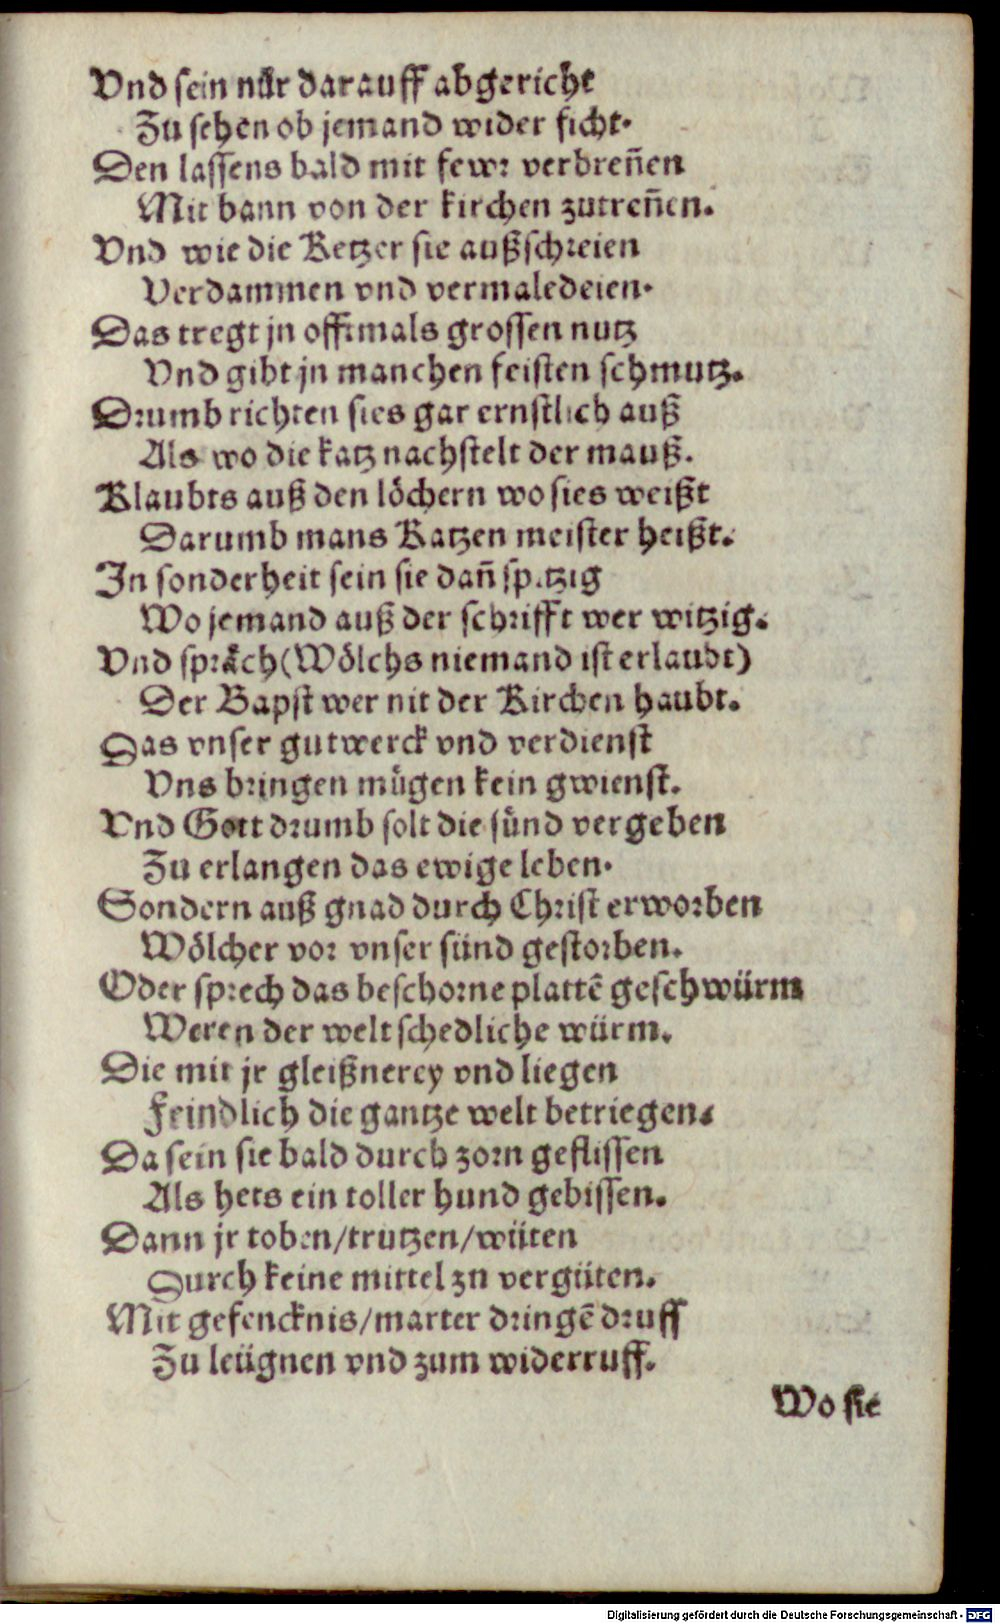 Vnd sein nůr darauff abgericht
Zu sehen ob jemand wider ficht.
Den lassens bald mit fewr verbreñen
Mit bann von der kirchen zutreñen.
Vnd wie die Ketzer sie außschreien
Verdammen vnd vermaledeien.
Das tregt jn offtmals grossen nutz
Vnd gibt jn manchen feisten schmutz.
Drumb richten sies gar ernstlich auß
Als wo die katz nachstelt der mauß.
Klaubts auß den löchern wo sies weißt
Darumb mans Katzen meister heißt.
In sonderheit sein sie dañ spitzig
Wo jemand auß der schrifft wer witzig.
Vnd språch (Wölchs niemand ist erlaubt)
Der Bapst wer nit der Kirchen haubt.
Das vnser gutwerck vnd verdienst
Vns bringen mügen kein gwienst.
Vnd Gott drumb solt die sünd vergeben
Zu erlangen das ewige leben.
Sondern auß gnad durch Christ erworben
Wölcher vor vnser sünd gestorben.
Oder sprech das beschorne plattē geschwürm
Weren der welt schedliche würm.
Die mit jr gleißnerey vnd liegen
Feindlich die gantze welt betriegen.
Da sein sie bald durch zorn geflissen
Als hets ein toller hund gebissen.
Dann jr toben/trutzen/wüten
Durch keine mittel zn vergüten.
Mit gefencknis/marter dringē druff
Zu leügnen vnd zum widerruff.
Wo sie
Digitalisierung gefördert durch die Deutsche Forschungsgemeinschaft - DFG